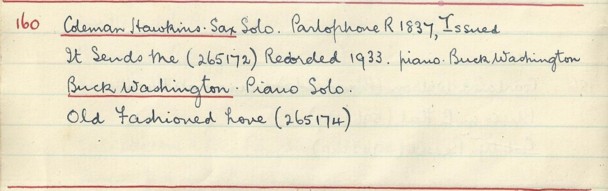 160 Coleman Hawkins. Sax Solo. Parlophone R 1837, Issued
It Sends Me (265172) Recorded 1933. piano. Buck Washington
Buck Washington. Piano Solo.
Old Fashioned Love (265174)